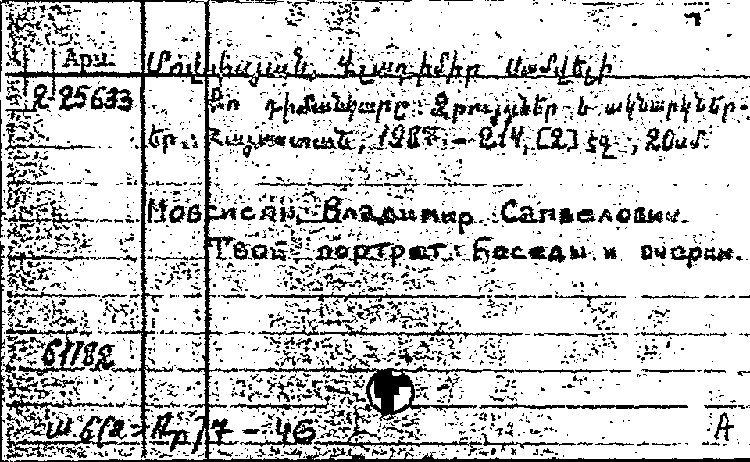 Арм.
Մովսիսյան, Վլադիմիր Սամվելի
2-25633
Քո դիմանկարը: Զրույցներ և ակնարկներ.
Եր., Հայաստան, 1987. – 214, [2] էջ, 20սմ.
Мовсисян, Владимир Самвелович.
Твой портрет: Беседы и очерки.
61782
7 - 46
A